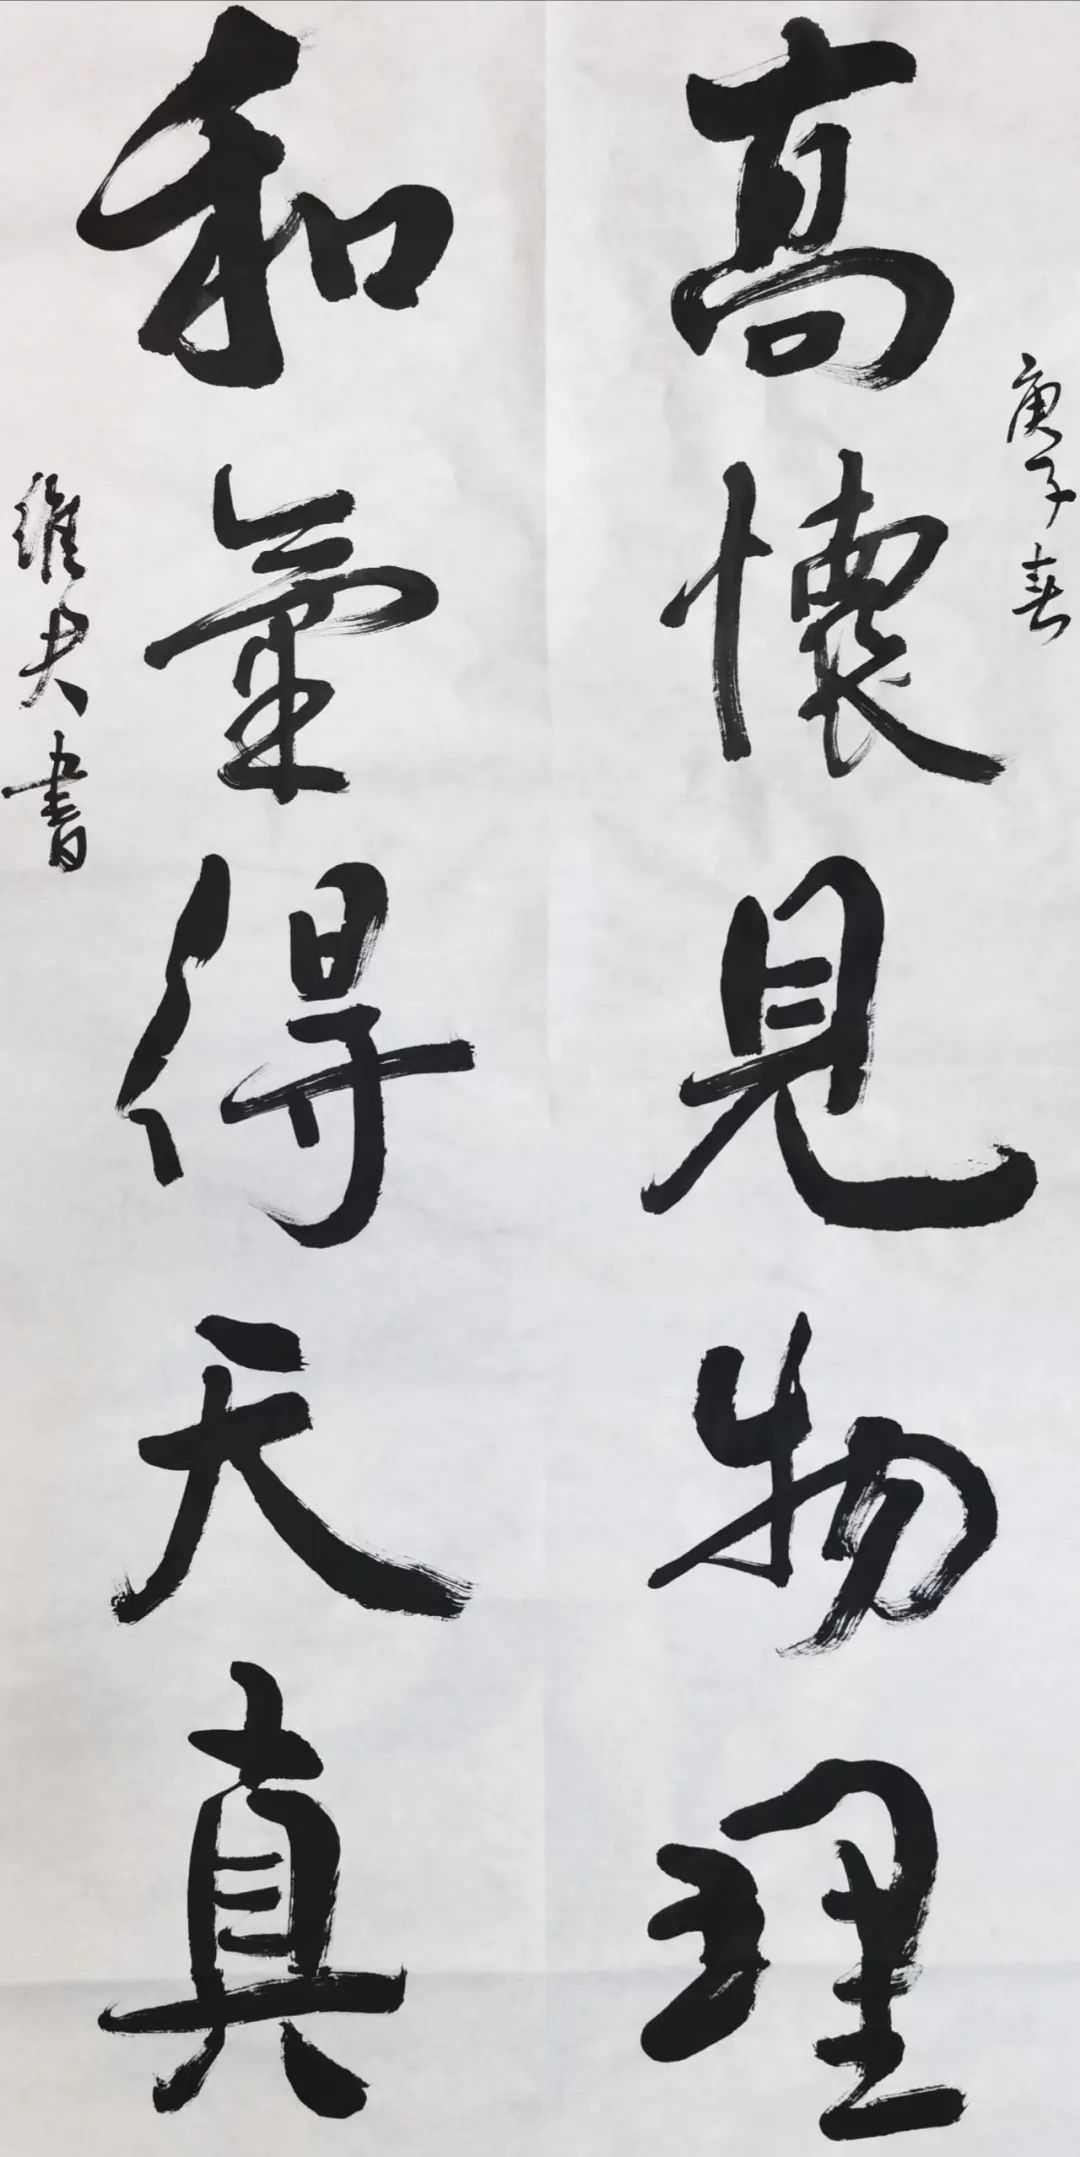 庚子春
高懷見物理
和氣得天真
維夫書